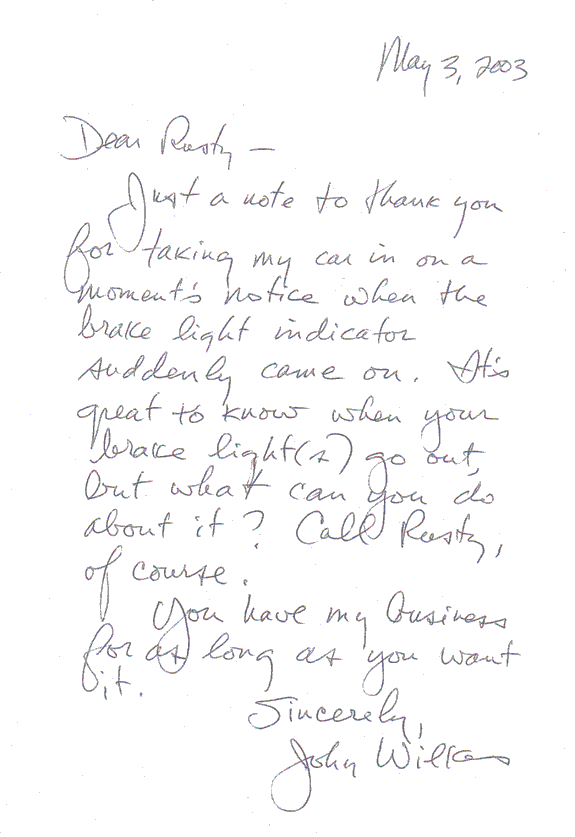 May 3, 2003
Dear Rusty —
Just a note to thank you
for taking my car in on a
moment's notice when the
brake light indicator
suddenly came on. It's
great to know when your
brake light(s) go out,
but what can you do
about it? Call Rusty,
of course.
You have my business
for as long as you want
it.
Sincerely,
John